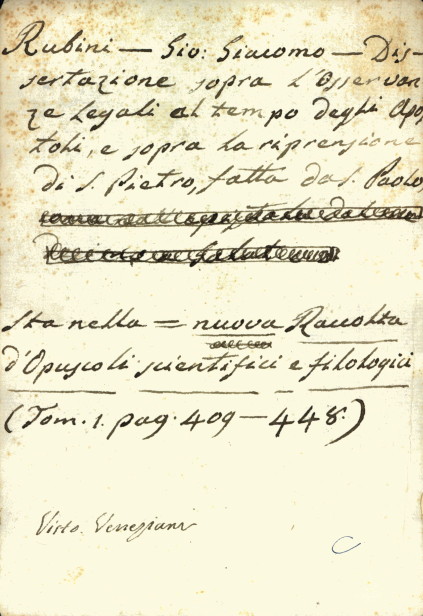 Rubini — Gio: Giacomo — Dis-
sertazione sopra l'Osservan
ze legali al tempo degli Apo,
toli, e sopra la riprensione
di S. Pietro, fatta da S. Paolo,
Sta nella = nuova Raccolta
d'Opuscoli scientifici e filologici
(Tom. 1. pag. 409 — 448.)
Visto. Veneziani